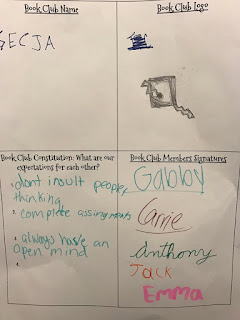 Book Club Name
Book Club Logo
GECJA
Book Club Constitution: What are our
expectations for each other?
Book Club Members Signatures
dont insult people,
thinking
complete assingments
always have an
open mind
Gabby
Carrie
Anthony
Jack
Emma